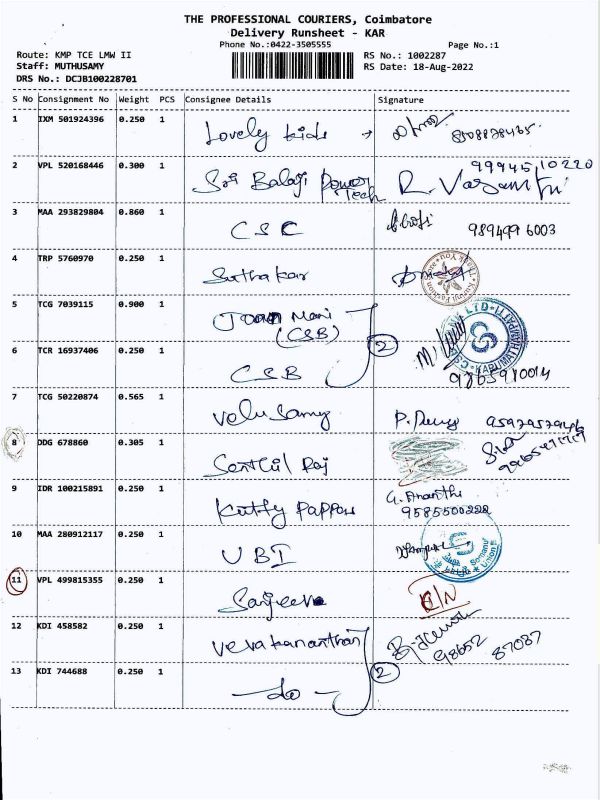 THE PROFESSIONAL COURIERS, Coimbatore
Delivery Runsheet - KAR
Phone No.:0422-3505555 Page No.:1
Route: KMP TCE LMW II RS No.: 1002287
Staff: MUTHUSAMY RS Date: 18-Aug-2022
DRS No.: DCJB100228701
S No Consignment No Weight PCS Consignee Details Signature
1 IXM 501924396 0.250 1 Lovely kids
2 VPL 520168446 0.300 1 Sri Balaji Power Tech R. Vasanthi 99945,10220
3 MAA 293829804 0.860 1 CSC 9894996003
4 TRP 5760970 0.250 1 Suthakar
5 TCG 7039115 0.900 1 Mari (CSB)
6 TCR 16937406 0.250 1 CSB 2 9865910014
7 TCG 50220874 0.565 1 Velusamy
8 DDG 678860 0.305 1 Senthil Raj
9 IDR 100215891 0.250 1 Kutty Pappou G. Ananthi
9585500222
10 MAA 280912117 0.250 1 UBI
11 VPL 499815355 0.250 1 Sanjeev
12 KDI 458582 0.250 1 Vevakananthan 98652 87087
13 KDI 744688 0.250 1 do 2